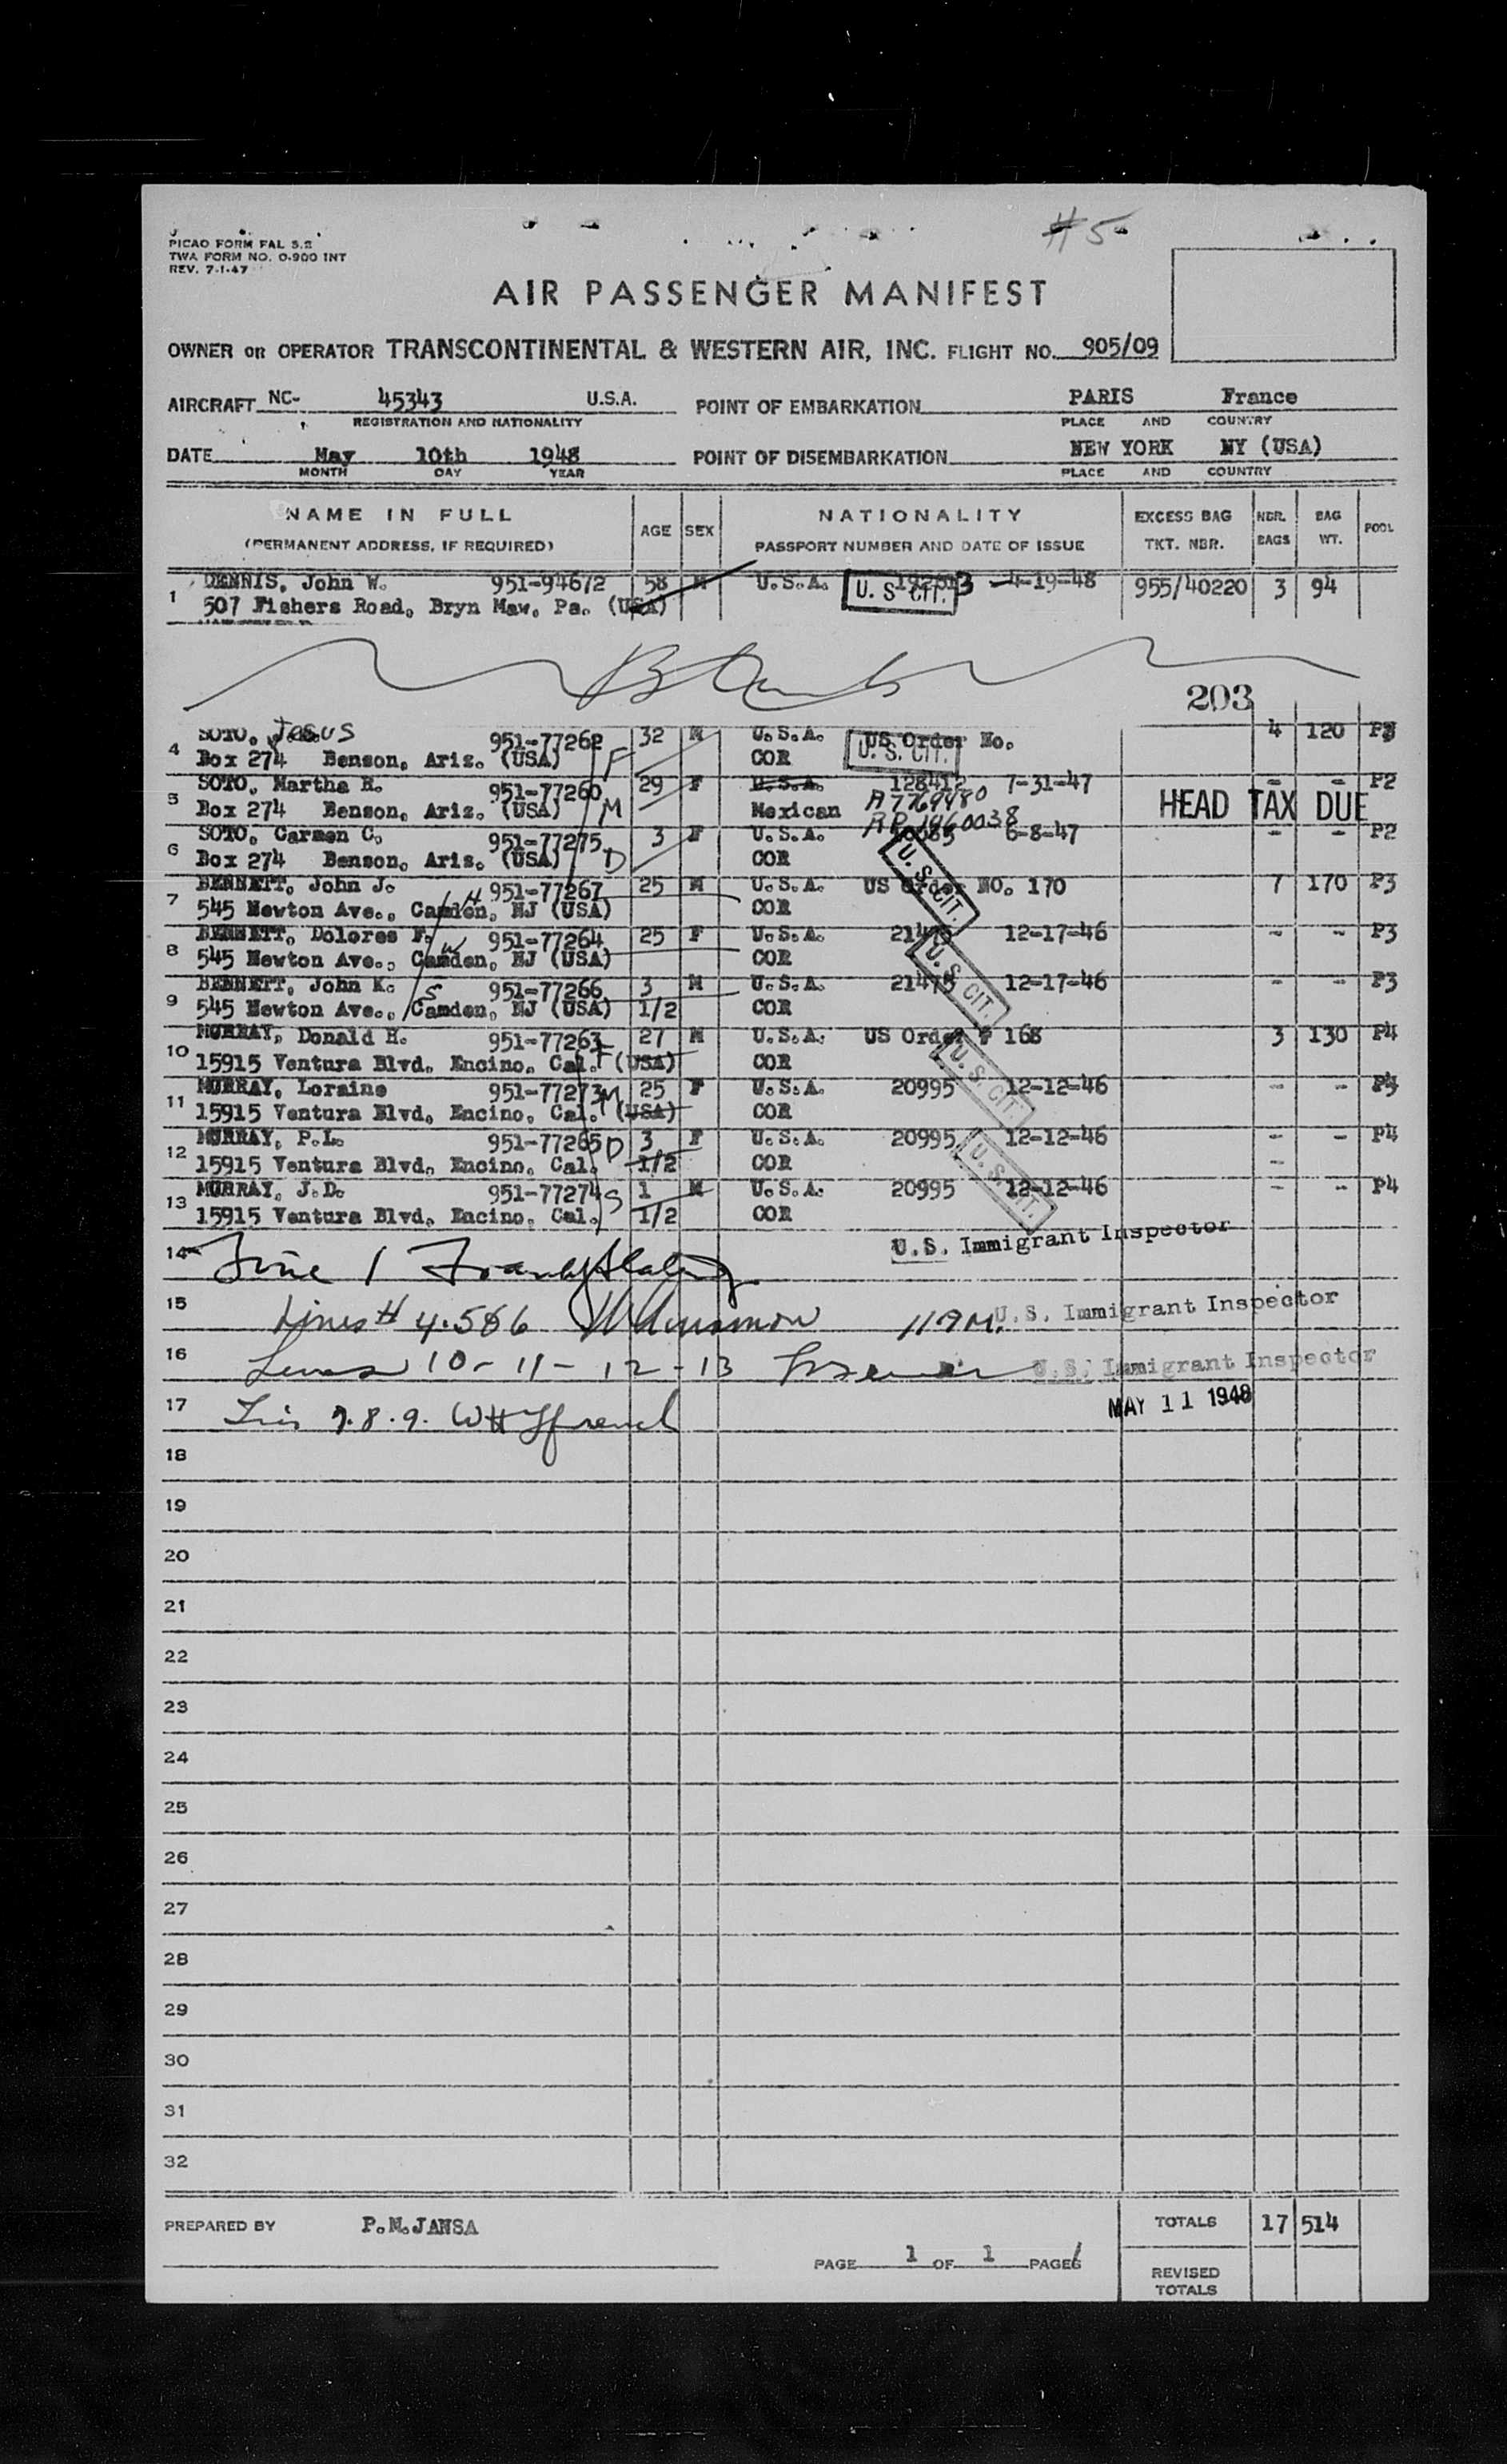 #5
PICAO FORM FAL 5.2
TWA FORM NO. O-900 INT
REV. 7-1-47
AIR PASSENGER MANIFEST
OWNER OR OPERATOR TRANSCONTINENTAL & WESTERN AIR, INC. FLIGHT NO. 905/09
AIRCRAFT NC- 45343 U.S.A. POINT OF EMBARKATION PARIS France
REGISTRATION AND NATIONALITY PLACE AND COUNTRY
DATE May 10th 1948 POINT OF DISEMBARKATION NEW YORK NY (USA)
MONTH DAY YEAR PLACE AND COUNTRY
NAME IN FULL AGE SEX NATIONALITY EXCESS BAG NBR. BAG POOL
(PERMANENT ADDRESS, IF REQUIRED) PASSPORT NUMBER AND DATE OF ISSUE TKT. NBR. BAGS WT.
1 DENNIS, John W. 951-94672 58 M U.S.A. 4-19-48 955/40220 3 94
507 Fishers Road, Bryn Maw, Pa. (USA) U. S. CIT.
Blank
203
4 SOTO, Jesus 951-77262 32 M U.S.A. US Order No. 4 120
Box 274 Benson, Aris. (USA) F COR U. S. CIT.
5 SOTO, Martha R. 951-77260 29 F U.S.A. 128412 7-31-47 - - P2
Box 274 Benson, Aris. (USA) M Mexican A7769480 HEAD TAX DUE
6 SOTO, Carmen C. 951-77275 3 F U.S.A. 6-8-47 - - P2
Box 274 Benson, Aris. (USA) D COR U. S. CIT.
7 BENNETT, John J. H 951-77267 25 M U.S.A. US Order NO. 170 7 170 P3
545 Newton Ave., Camden, NJ (USA) COR
8 BENNETT, Dolores F. W 951-77264 25 F U.S.A. 12-17-46 - - P3
545 Newton Ave., Camden, NJ (USA) COR U. S. CIT.
9 BENNETT, John K. S 951-77266 3 M U.S.A. 21475 12-17-46 - - P3
545 Newton Ave., Camden, NJ (USA) 1/2 COR
10 MURRAY, Donald H. 951-77263 27 M U.S.A. US Order # 168 3 130 P4
15915 Ventura Blvd. Encino, Cal. F (USA) COR U. S. CIT.
11 MURRAY, Loraine 951-77273 M 25 F U.S.A. 20995 12-12-46 - -
15915 Ventura Blvd, Encino, Cal. (USA) COR
12 MURRAY, P.L. 951-77265 D 3 F U.S.A. 20995 12-12-46 - - P4
15915 Ventura Blvd, Encino, Cal. 1/2 COR U. S. CIT. -
13 MURRAY, J.D. 951-77274 S 1 M U.S.A. 20995 12-12-46 - - P4
15915 Ventura Blvd, Encino, Cal. 1/2 COR
14 Line 1 U.S. Immigrant Inspector
15 Lines # 4.5&6 U.S. Immigrant Inspector
16 Lines 10-11-12-13 U.S. Immigrant Inspector
17 7.8.9. MAY 11 1948
18
19
20
21
22
23
24
25
26
27
28
29
30
31
32
PREPARED BY P.M.JANSA TOTALS 17 514
PAGE 1 OF 1 PAGES
REVISED
TOTALS